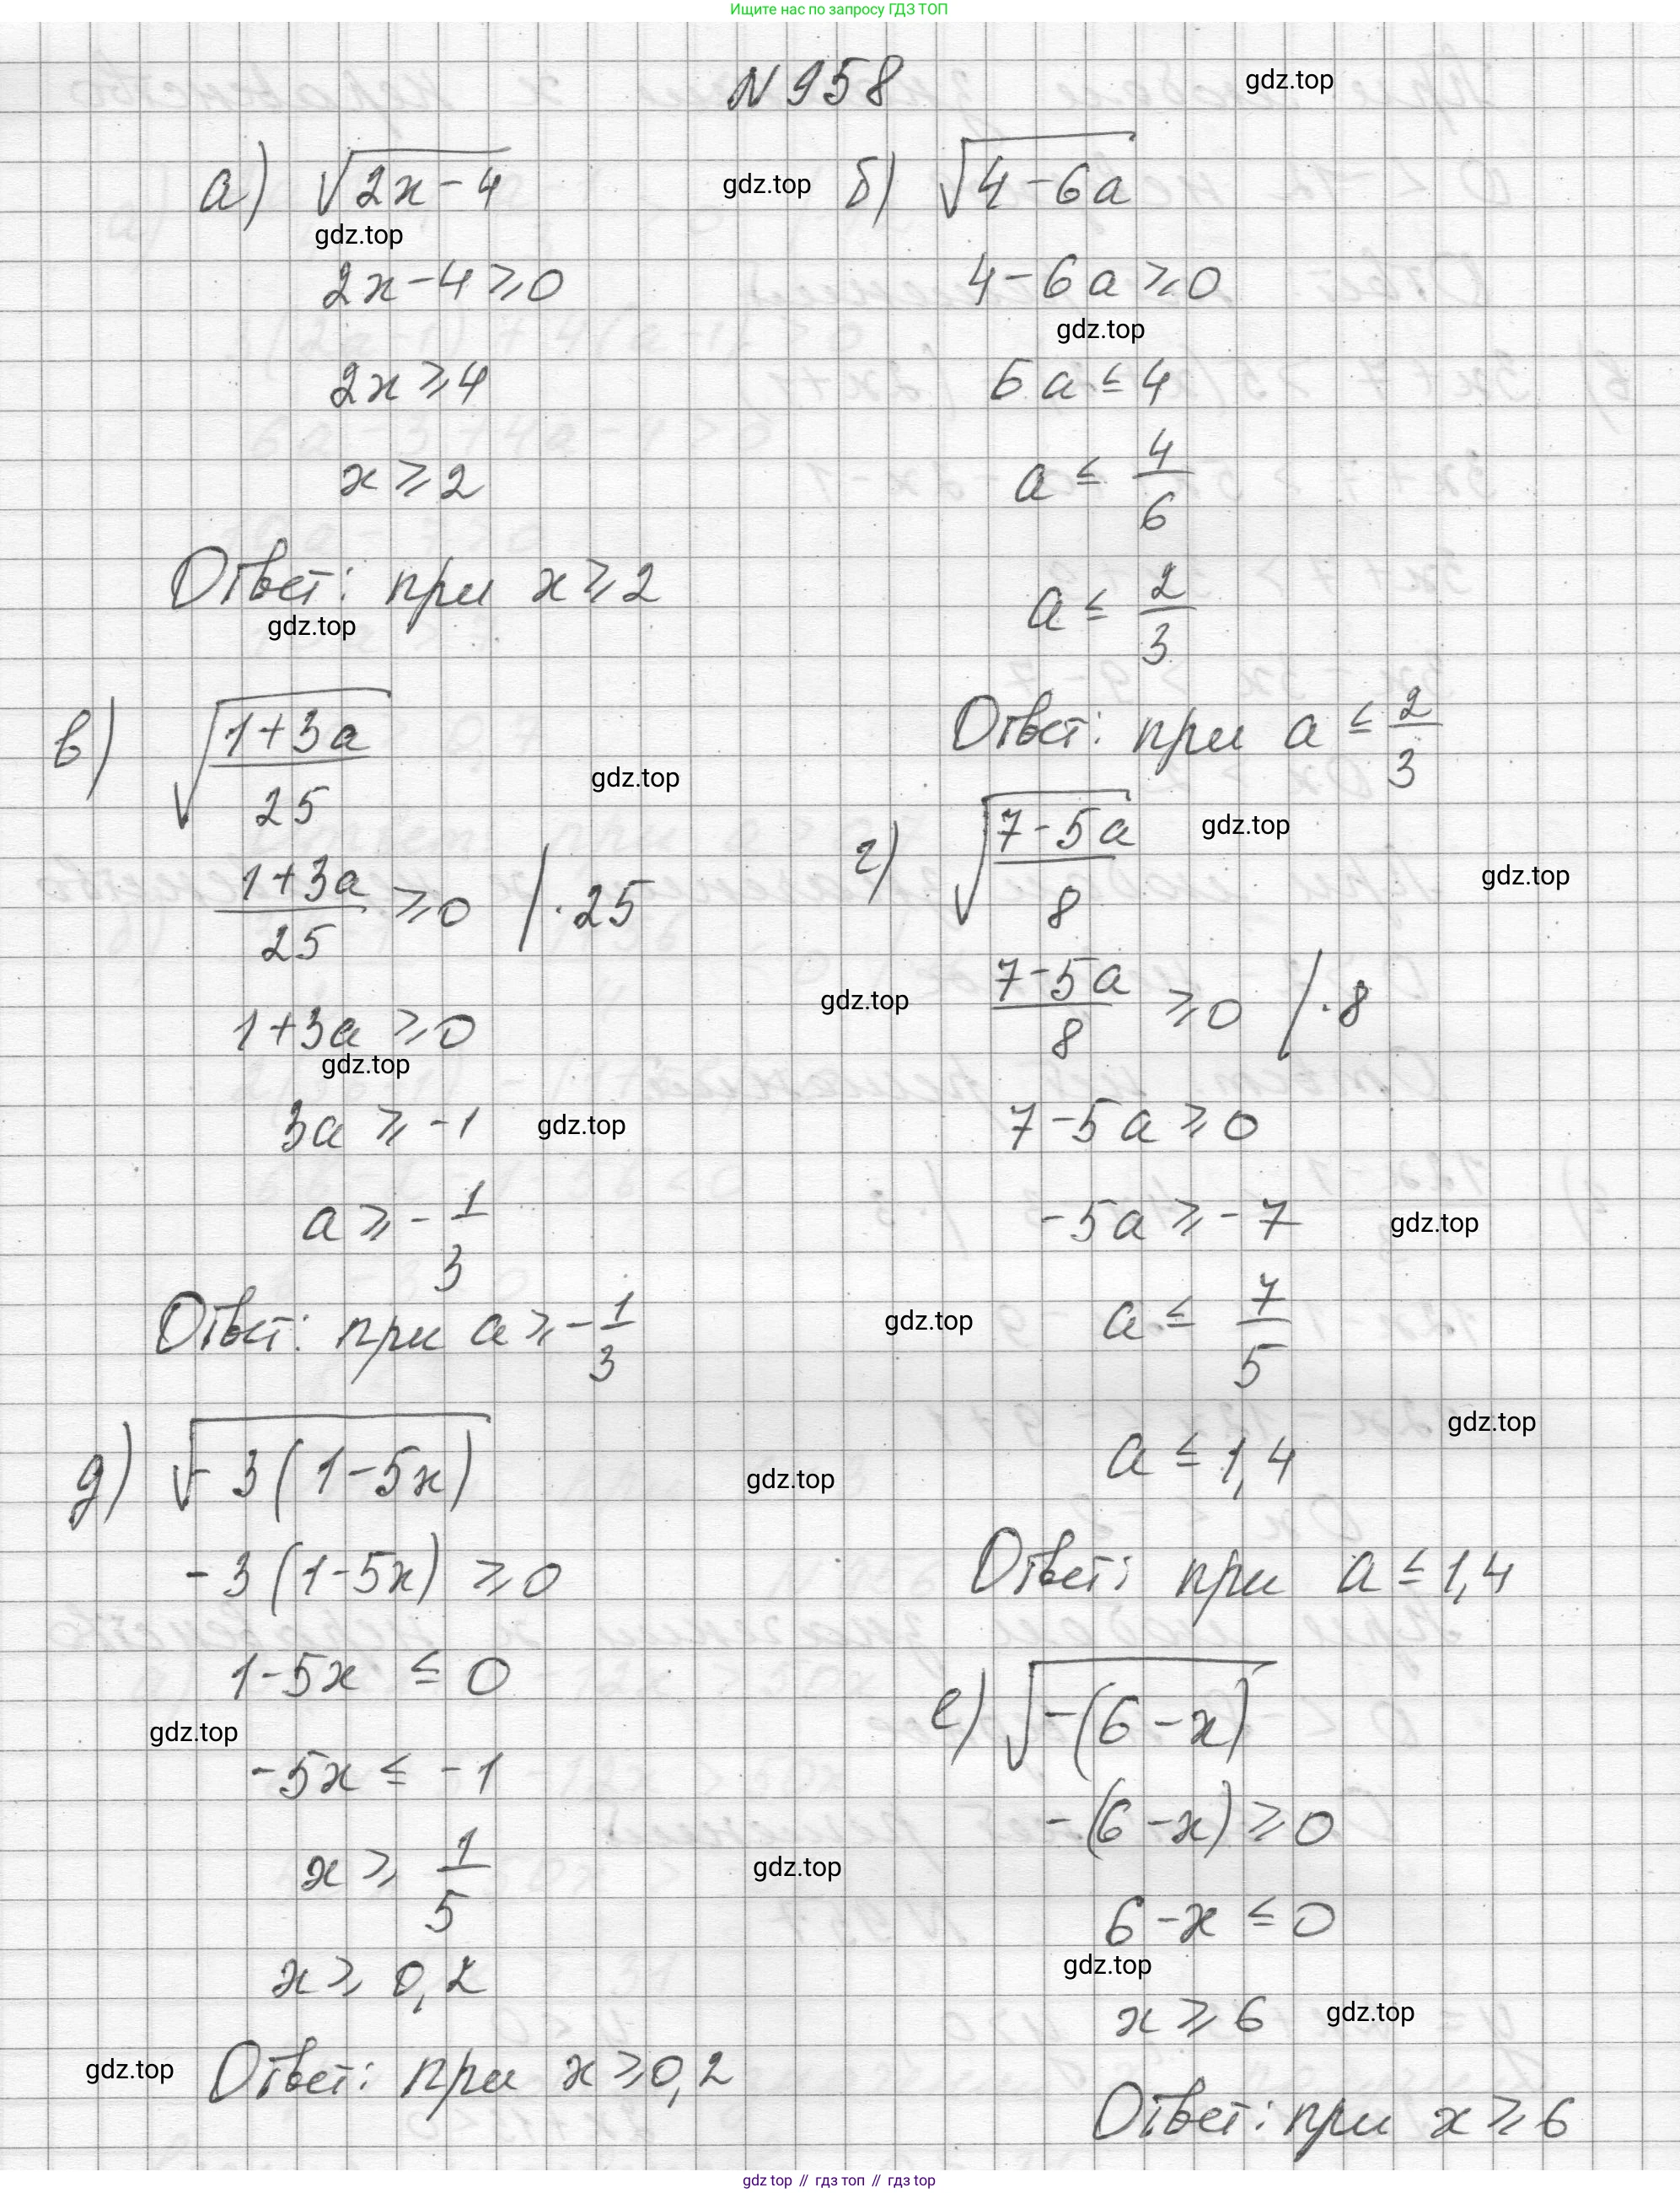 Ищите нас по запросу ГДЗ ТОП
N 958
gdz.top
а) √(2x-4)
gdz.top
2x-4 ≥ 0
2x ≥ 4
x ≥ 2
Ответ: при x ≥ 2
gdz.top
gdz.top
б) √(4-6a)
4-6a ≥ 0
gdz.top
6a ≤ 4
a ≤ 4/6
a ≤ 2/3
Ответ: при a ≤ 2/3
в) √((1+3a)/25)
gdz.top
(1+3a)/25 ≥ 0 | ·25
1+3a ≥ 0
gdz.top
3a ≥ -1
gdz.top
a ≥ -1/3
Ответ: при a ≥ -1/3
г) √((7-5a)/8)
gdz.top
gdz.top
gdz.top
(7-5a)/8 ≥ 0 | ·8
7-5a ≥ 0
-5a ≥ -7
gdz.top
gdz.top
a ≤ 7/5
gdz.top
a ≤ 1,4
Ответ: при a ≤ 1,4
д) √(-3(1-5x))
gdz.top
-3(1-5x) ≥ 0
1-5x ≤ 0
gdz.top
-5x ≤ -1
x ≥ 1/5
gdz.top
x ≥ 0,2
gdz.top
Ответ: при x ≥ 0,2
е) √(-(6-x))
-(6-x) ≥ 0
6-x ≤ 0
gdz.top
x ≥ 6
gdz.top
Ответ: при x ≥ 6
gdz top // гдз топ // gdz.top